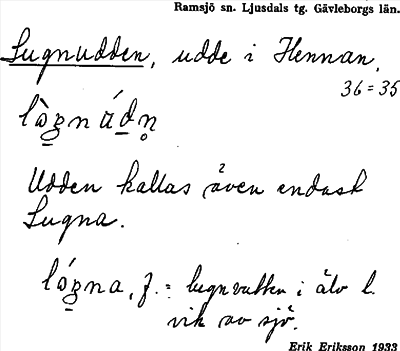 Ramsjö sn. Ljusdals tg. Gävleborgs län.
Lugnudden, udde i Hennan,
36=35
Udden kallas även endast
Lugna.
f. = lugnvatten i älv l.
vik av sjö.
Erik Eriksson 1933